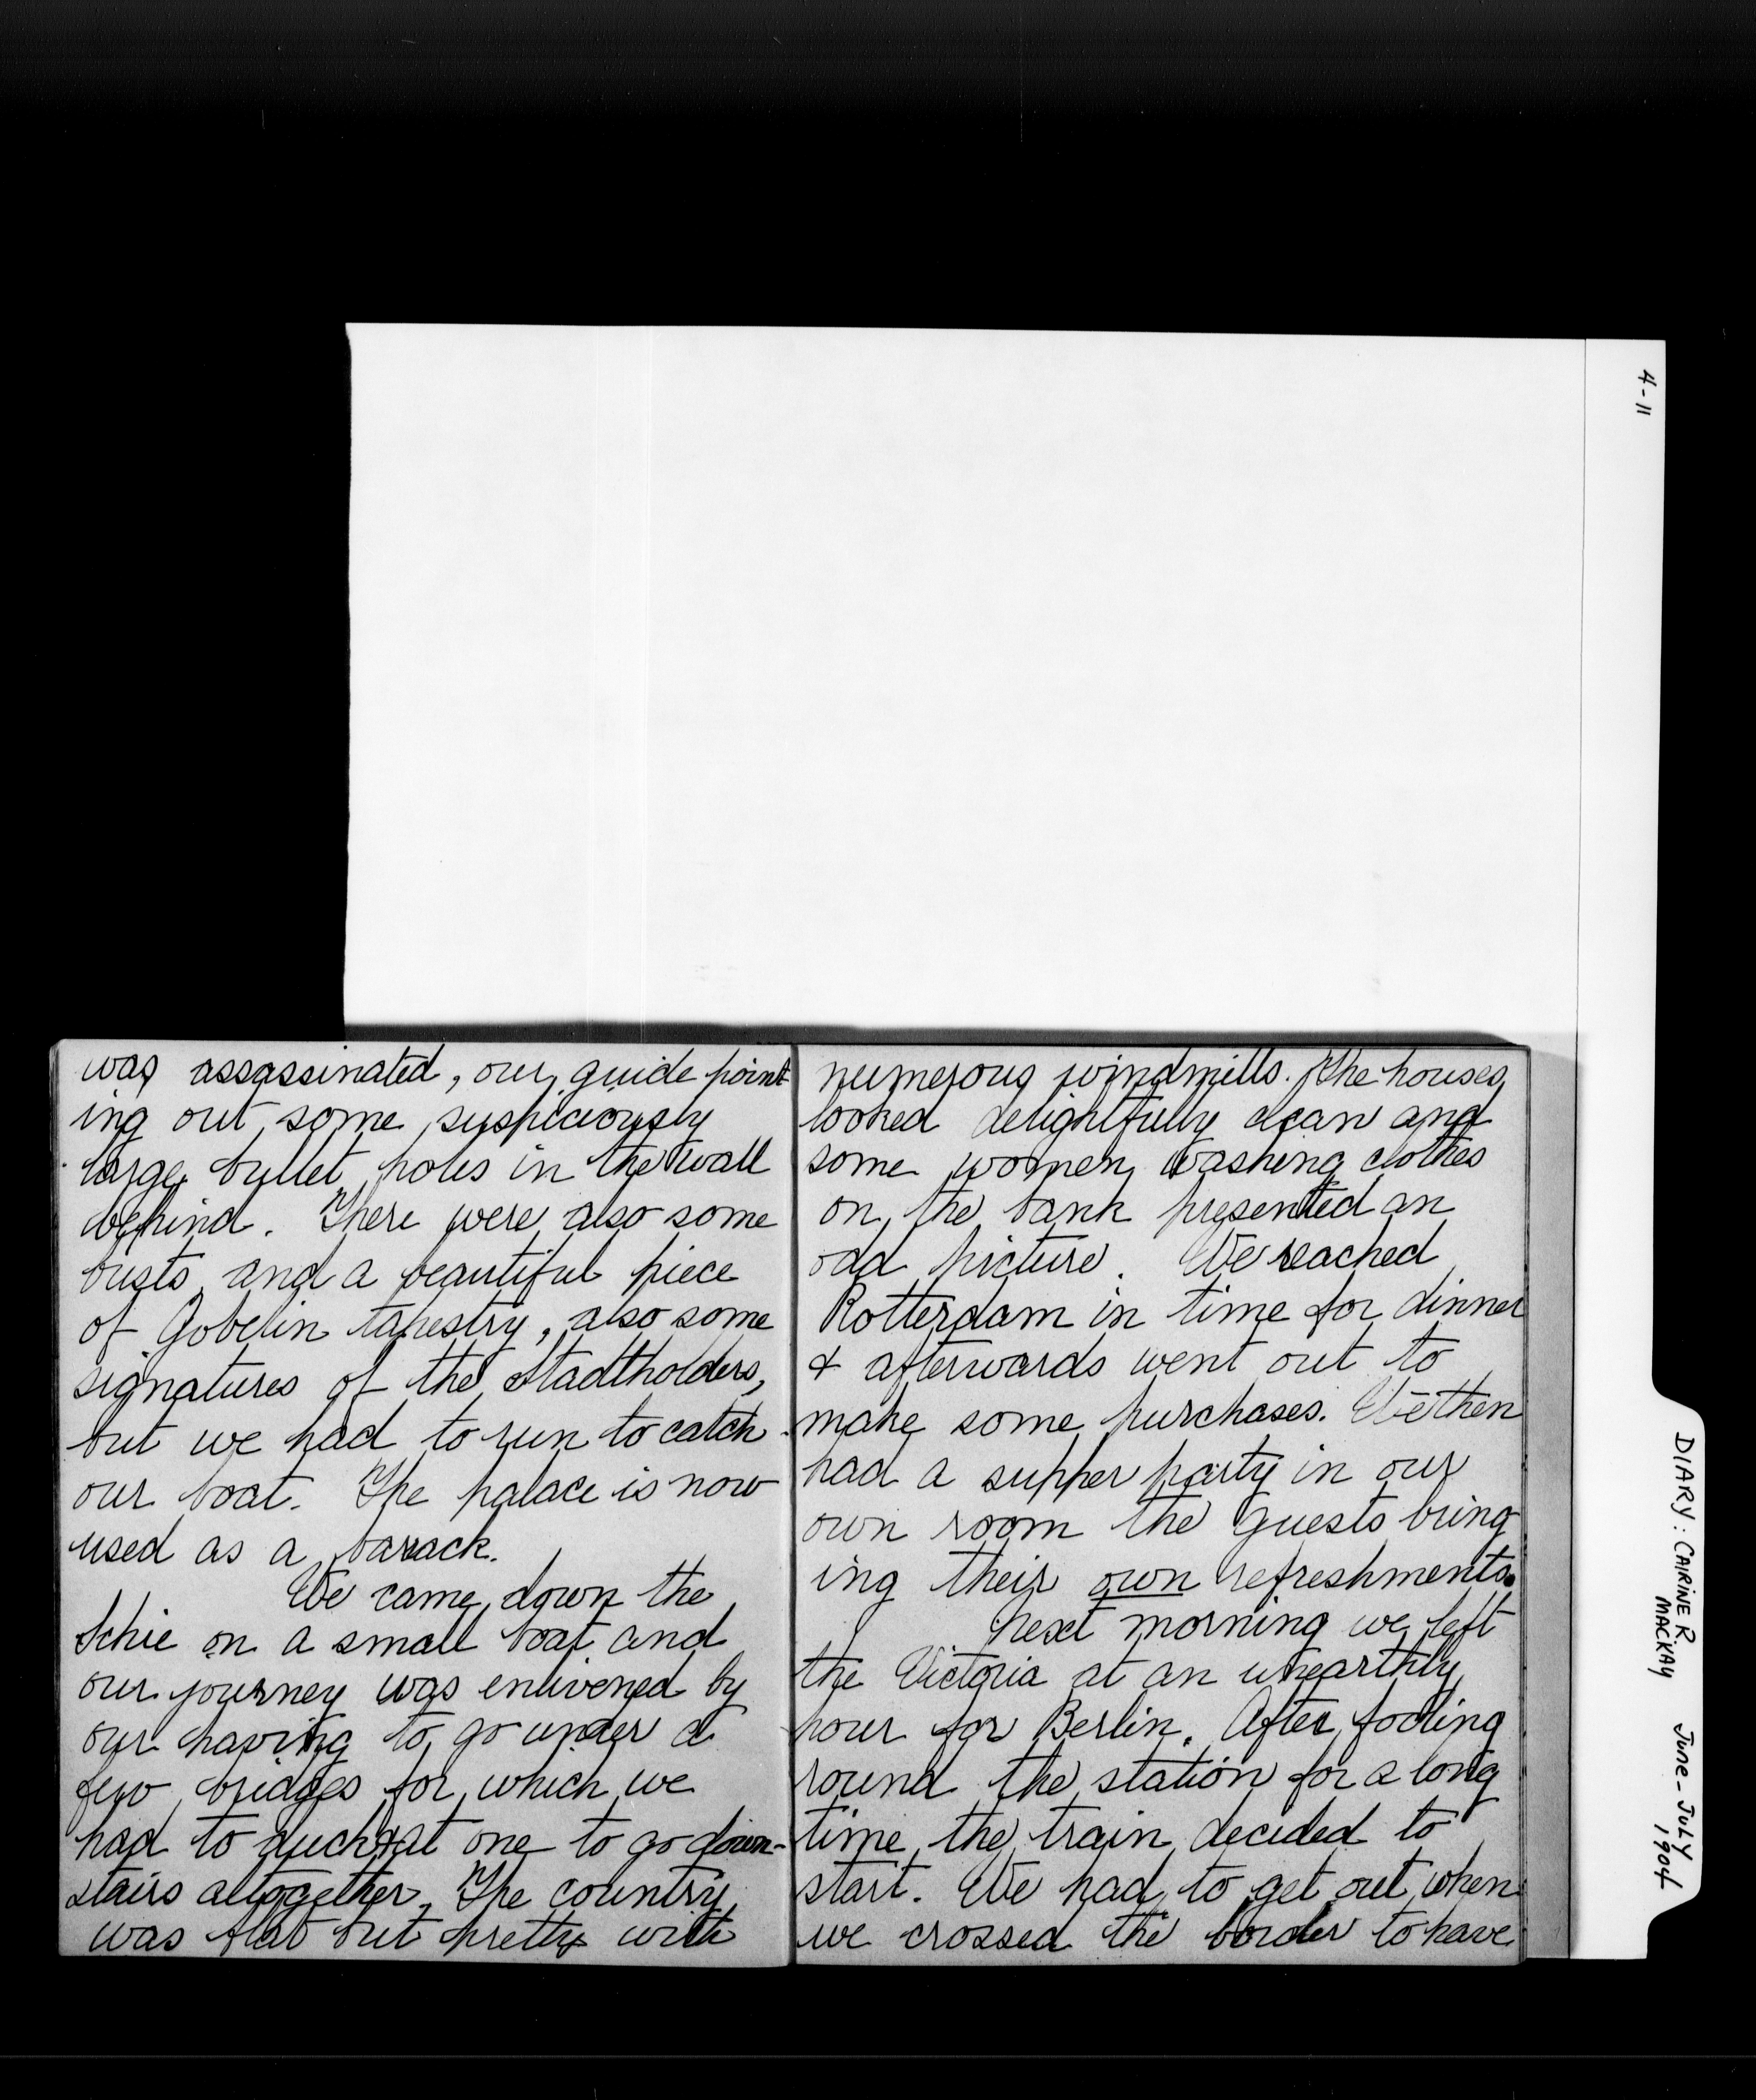 4-11
DIARY: CAIRINE R.
MACKAY
JUNE-JULY
1904
was assassinated, our guide point
ing out some suspiciously
large bullet holes in the wall
behind. There were also some
busts and a beautiful piece
of Gobelin tapestry, also some
signatures of the Stadtholders,
but we had to run to catch
our boat. The palace is now
used as a barack.
We came down the
Schie on a small boat and
our journey was enlivened by
our having to go under a
few bridges for which we
had to duck & at one to go down-
stairs altogether. The country
was flat but pretty with
numerous windmills. The houses
looked delightfully clean and
some women washing clothes
on the bank presented an
odd picture. We reached
Rotterdam in time for dinner
& afterwards went out to
make some purchases. We then
had a supper party in our
own room the guests bring
ing their own refreshments.
Next morning we left
the Victoria at an unearthly
hour for Berlin. After fooling
round the station for a long
time the train decided to
start. We had to get out when
we crossed the border to have